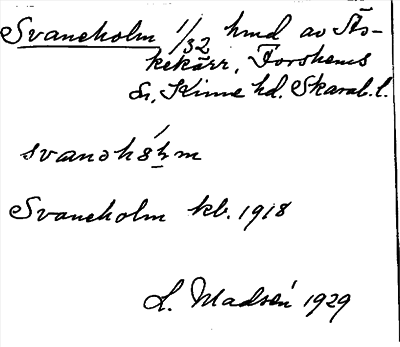 Svaneholm 1/32 hmd av Äs-
kekärr, Forshems
sn, Kinne hd. Skarab. l.
svanəhó̀lm
Svaneholm kb. 1918
L. Madsén 1929